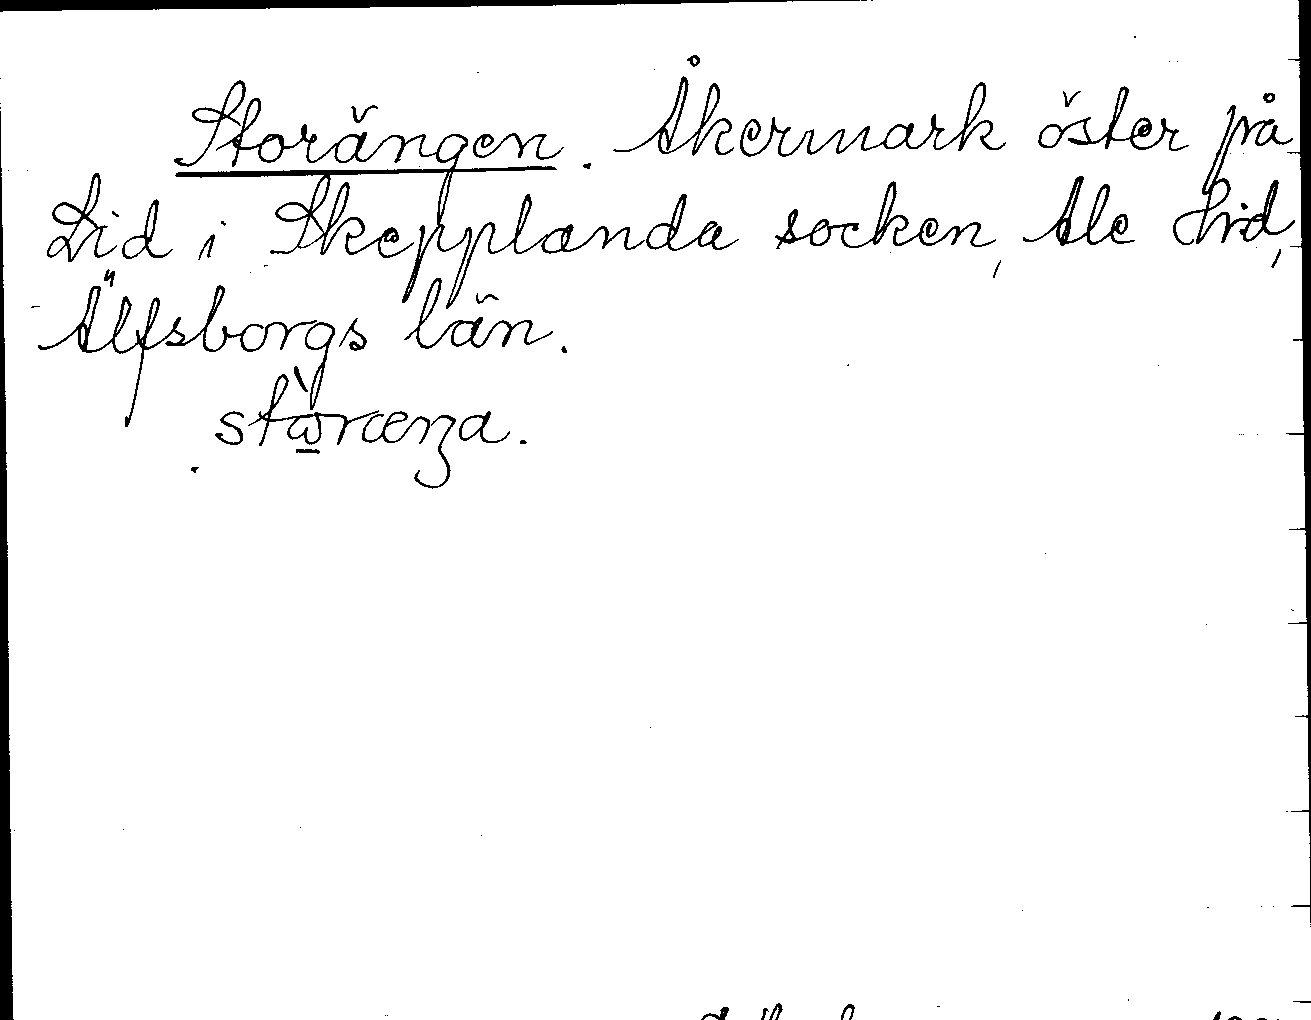 Storängen. Åkermark öster på
Lid i Skepplanda socken, Ale hrd,
Älfsborgs län.